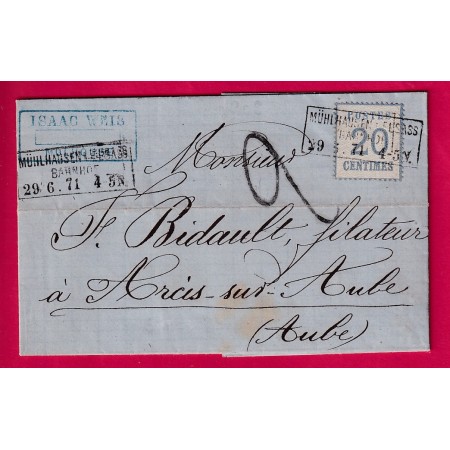 ISAAC WEIS
MÜHLHAUSEN I. ELSASS
BAHNHOF
29 6. 71 4-5 N.
MÜHLHAUSEN I. ELSASS
29 71 4-5 N.
POSTES
20
CENTIMES
2
Monsieur
F. Bidault, filateur
à Arcis-sur-Aube
(Aube)